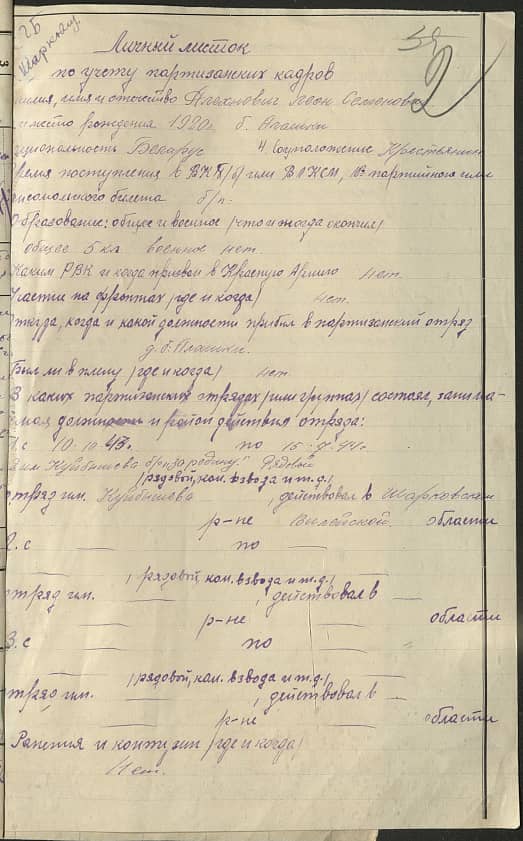 2Б
Шарковщ.
Личный листок
по учету партизанских кадров
милия, имя и отчество Плехнович Леон Семенович
и место рождения 1920г. д.
циональность Беларус 4. Соцположение Крестьянин
ремя поступления в ВКП/б/ или ВЛКСМ, № партийного или
комсомольского билета б/п.
Образование: общее и военное /что и когда окончил/
общее 5 кл военное нет.
Каким РВК и когда призван в Красную Армию нет.
Участие на фронтах /где и когда/ нет.
ткуда, когда и какой должности прибыл в партизанский отряд
Был ли в плену /где и когда/ нет.
В каких партизанских отрядах /или группах/ состоял, занима-
емая должность и район действия отряда:
1. с 10.10.43г. по 15.7.44г.
им Куйбышева бриг "за родину" Рядовой
/рядовой, ком. взвода и т.д./
отряд им. Куйбышева, действовал в Шарковском
р-не Вилейской области
2. с — по —
/рядовой, ком. взвода и т.д./
отряд им. —, действовал в —
р-не — области
3. с — по —
/рядовой, ком. взвода и т.д./
отряд им. —, действовал в —
р-не — области
Ранения и контузии /где и когда/
Нет.